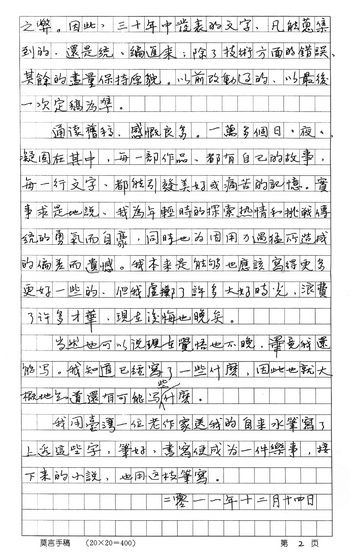 之弊。因此，三十年中发表的文字，凡能蒐集
到的，還是统、编進来；除了技術方面的错誤，
其餘的盡量保持原貌。以前改動了的，以最後
一次定稿為準。
通讀舊稿，感慨良多。一萬多個日、夜、
凝固在其中，每一部作品，都有自己的故事，
每一行文字，都能引發美好或痛苦的記憶。實
事求是地説，我為年輕時的探索热情和挑戰傳
统的勇氣而自豪，同時也为因用力過猛所造成
的偏差而遺憾。我本来是能够也應該寫得更多
更好一些的，但我虚擲了許多大好時光，浪费
了許多才華，现在後悔也晚矣。
当然也可以説现在覺悟也不晚，畢竟我還
能写。我知道已經寫了一些什麼，因此也就大
概地知道還有可能写些什麼。
我用臺灣一位老作家送我的自来水筆寫了
上述這些字，筆好，書寫便成为一件樂事，接
下来的小説，也用這枝筆寫。
二零一一年十二月十四日
莫言手稿 (20×20=400) 第 2 页